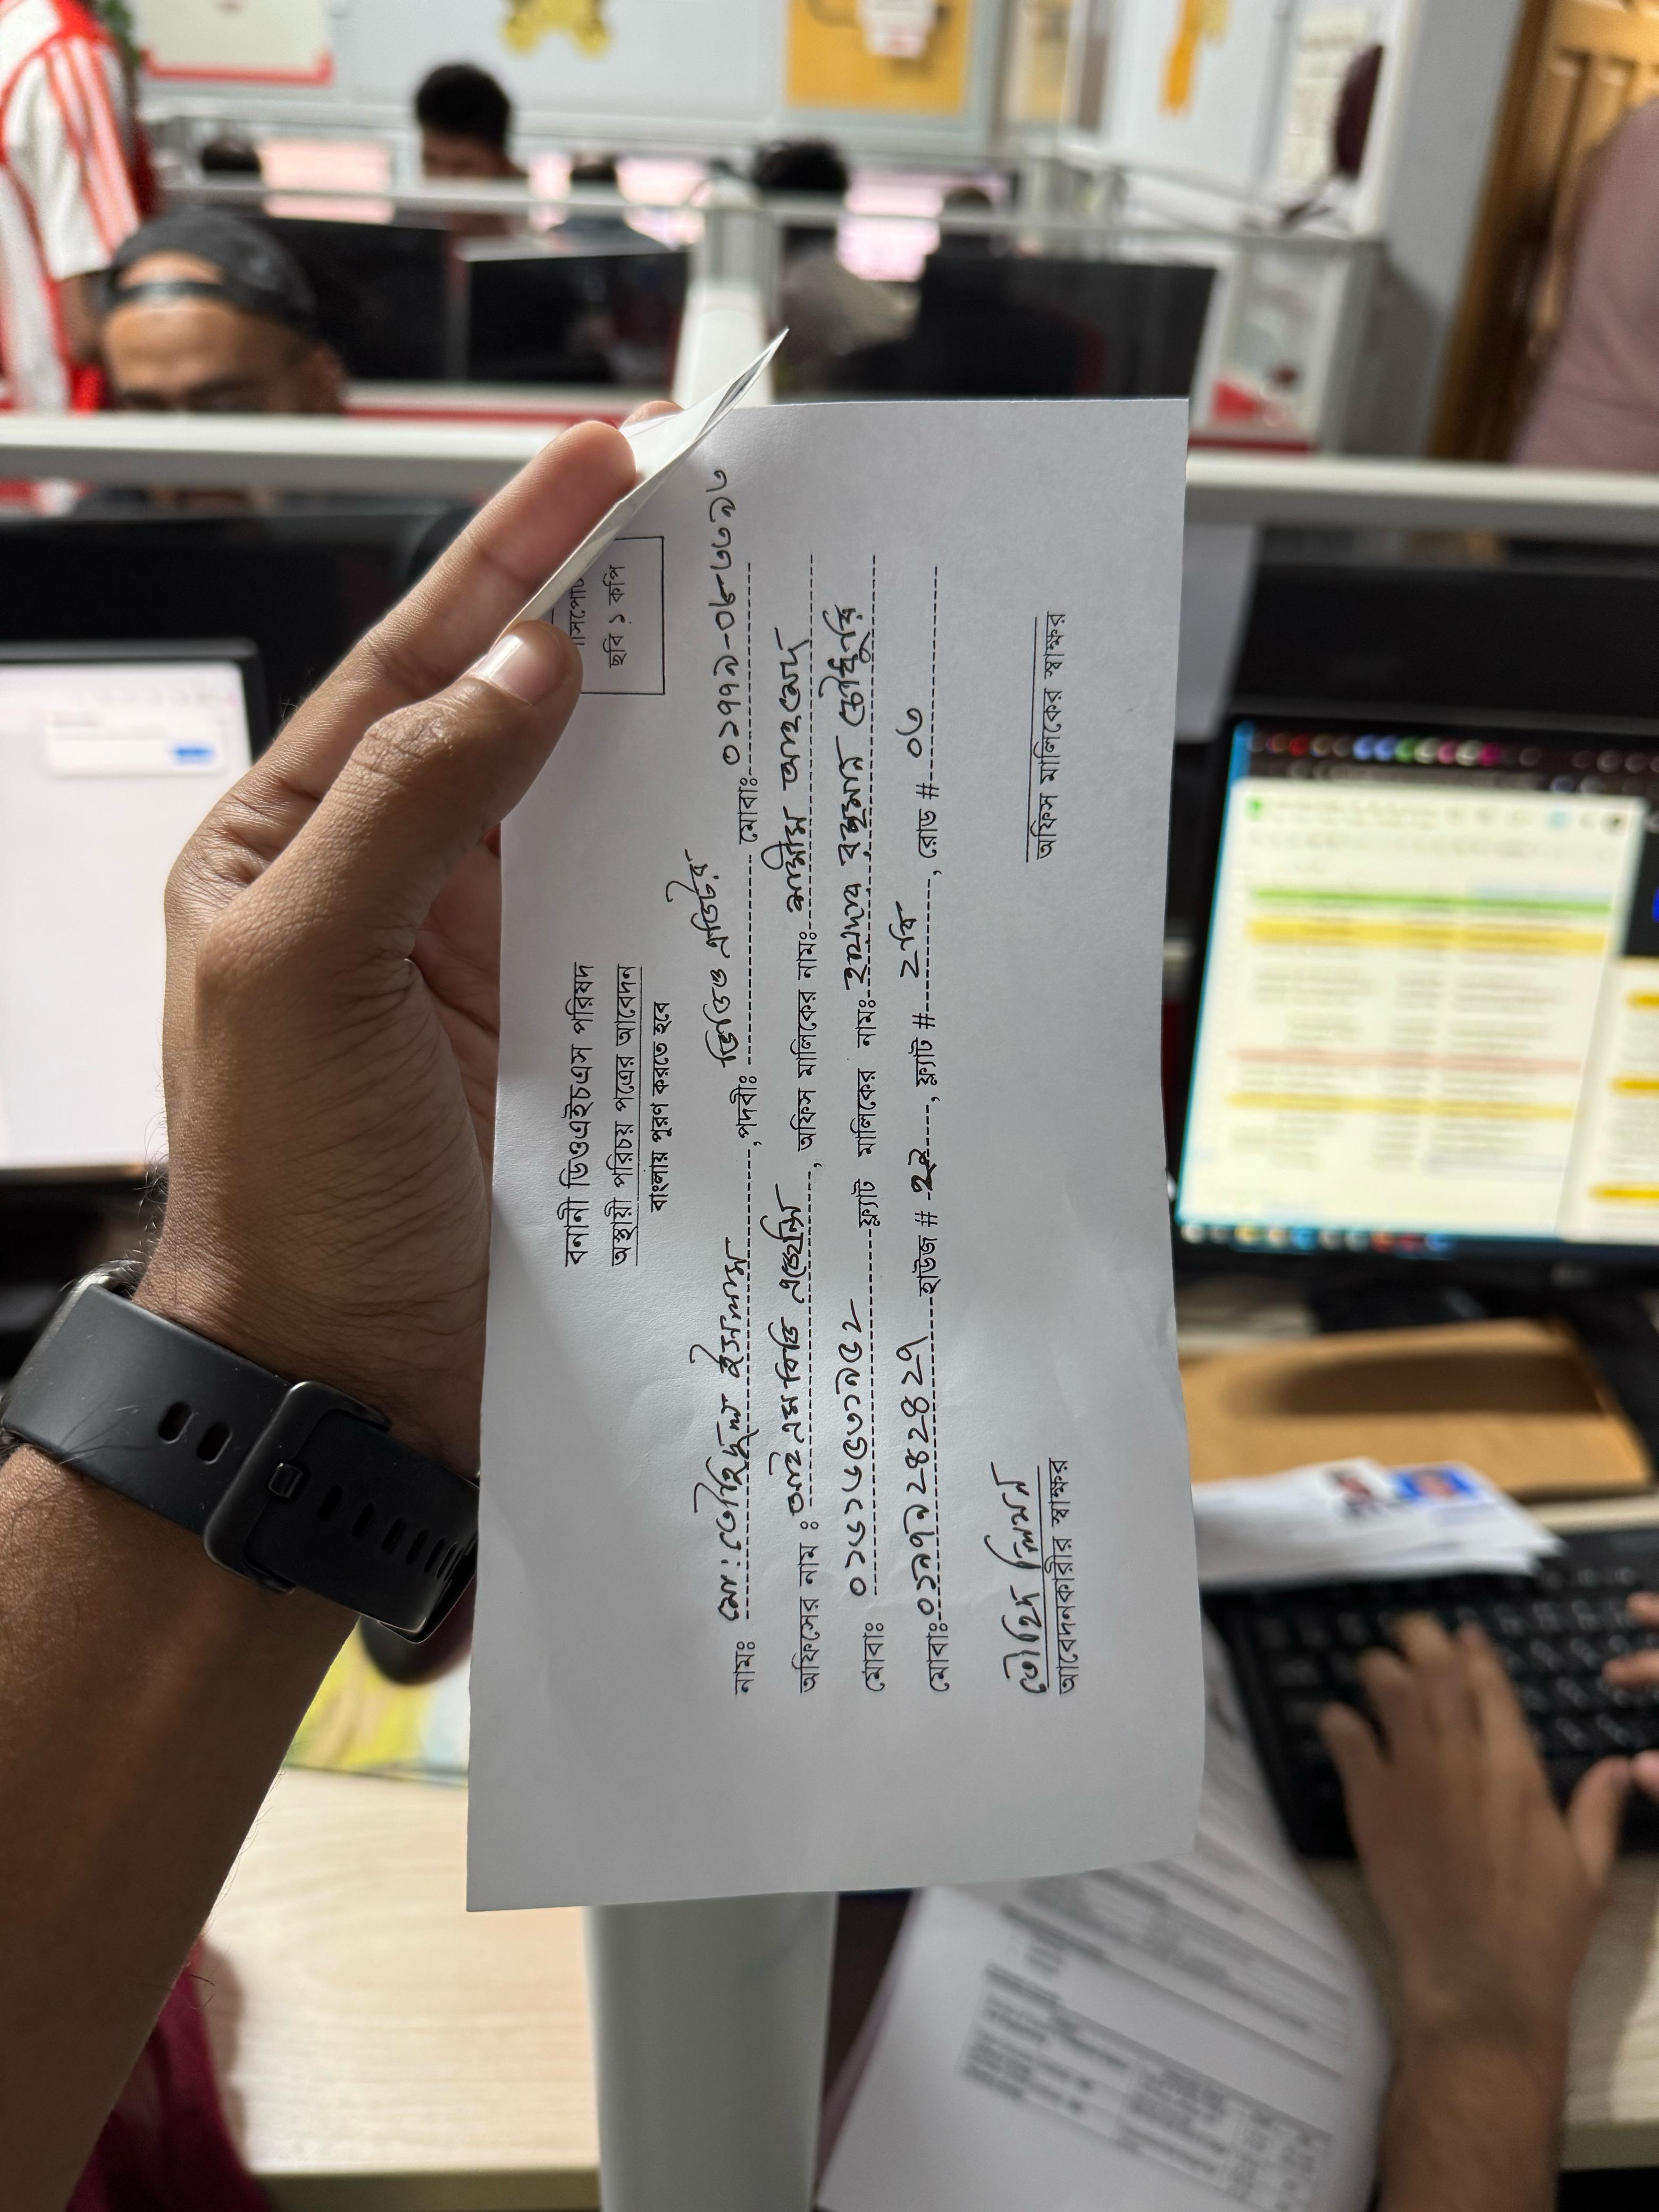 বনানী ডিওএইচএস পরিষদ
অস্থায়ী পরিচয় পত্রের আবেদন
বাংলায় পূরণ করতে হবে
ছবি ১ কপি
নামঃ মো: তৌহিদুল ইসলাম, পদবীঃ ভিডিও এডিটর মোবাঃ
অফিসের নাম ঃ আই এম বিডি এজেন্সি, অফিস মালিকের নামঃ শামীম আহমেদ
মোবাঃ ০১৬১৬৫৩১৯৫২ ফ্ল্যাট মালিকের নামঃ রহমান চৌধুরি
মোবাঃ ০১৯৭৯২৪২৪২৭ হাউজ # ফ্ল্যাট # ২বি, রোড # ০৩
তৌহিদ লিমন
আবেদনকারীর স্বাক্ষর
অফিস মালিকের স্বাক্ষর